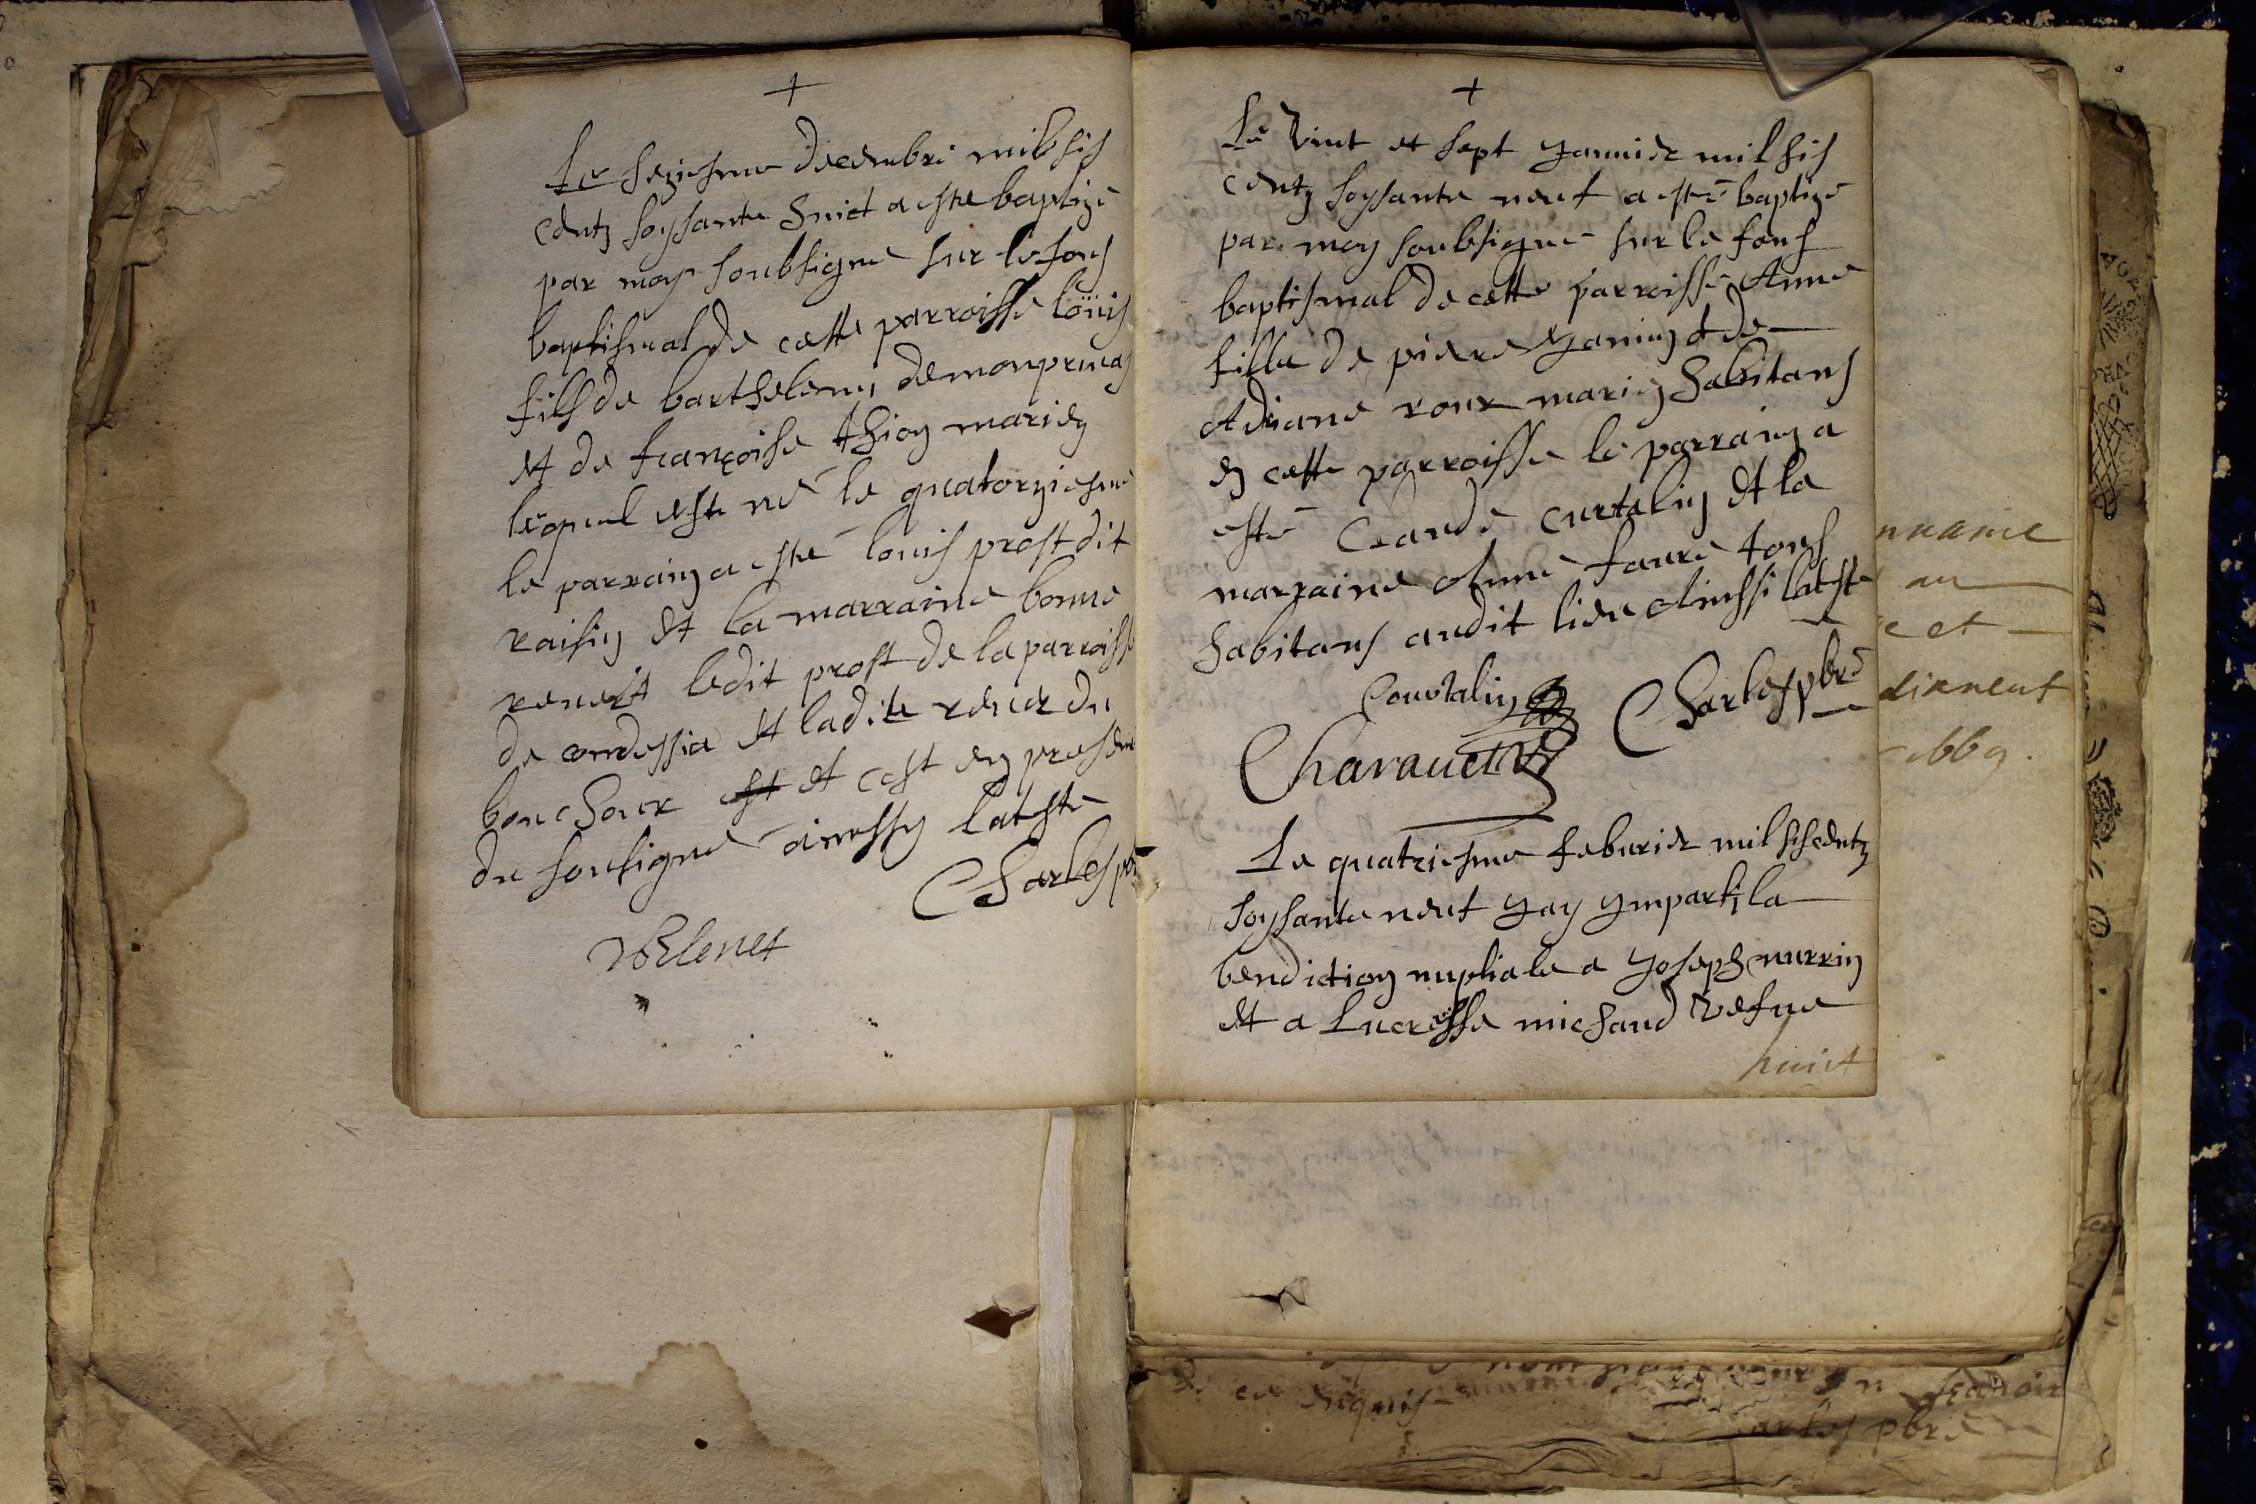 +
Le seziesme decembre mil sis
centz soysante huict a este baptizé
par moy soubsigné sur le fons
baptismal de cette parroisse loüis
fils de barthelemy demonprivas
et de françoise thion mariez
lequel este né le quatorziesme
le parrain a esté louis prost dit
raisin et la marraine bonne
revert ledit prost de la parroisse
de condessia et ladite rever du
bouchoux est et cest en presence
du sousigné ainssy lateste
Charles pbre
Velenet
+
Le vint et sept yanvier mil sis
centz soysante neuf a esté baptizé
par moy soubsigné sur le fons
baptismal de cette parroisse Anne
fille de piere yanin et de
Adriane roux mariez habitans
en cette parroisse le parrain a
esté Claude curtalin et la
marraine Anne faure tous
habitans audit lieu Ainssi lateste
Courtalin
Charles pbre
Charavet
Le quatriesme feburier mil siscentz
soysante neuf yay ymparti la
bendiction nuptiale a yoseph murrin
et a Lucresse michaud vefve
huict
au
et
pbre